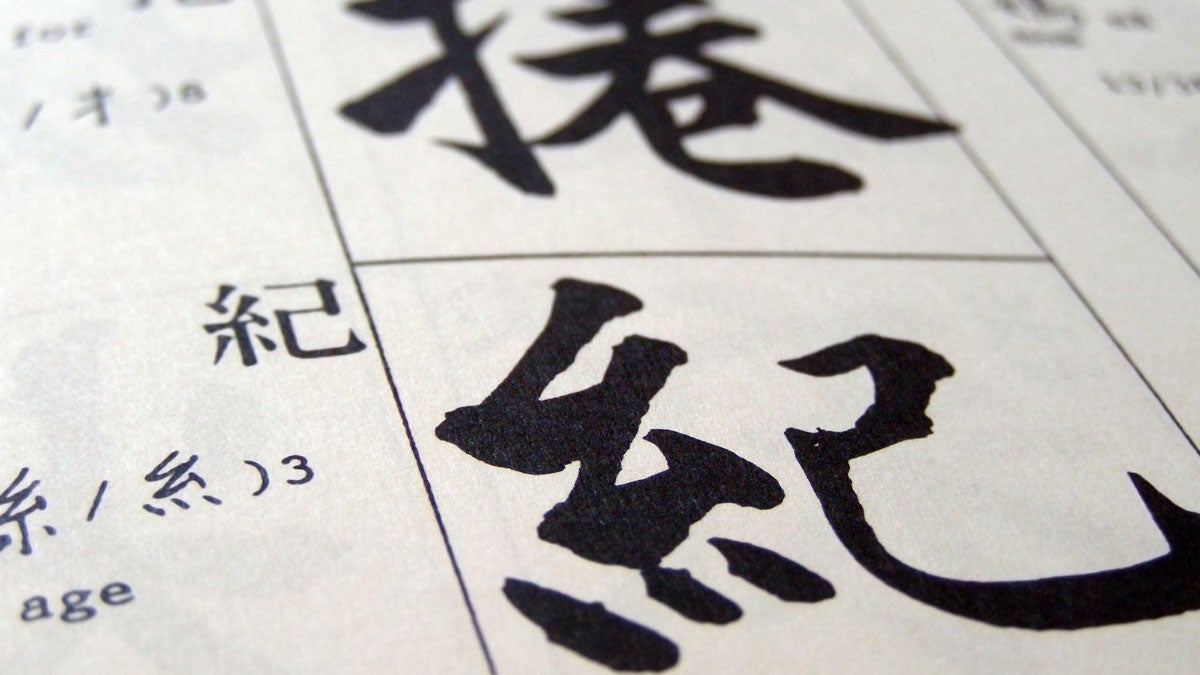 for
/ 才 )8
捲
紀
紀
糸 / 糹 )3
age